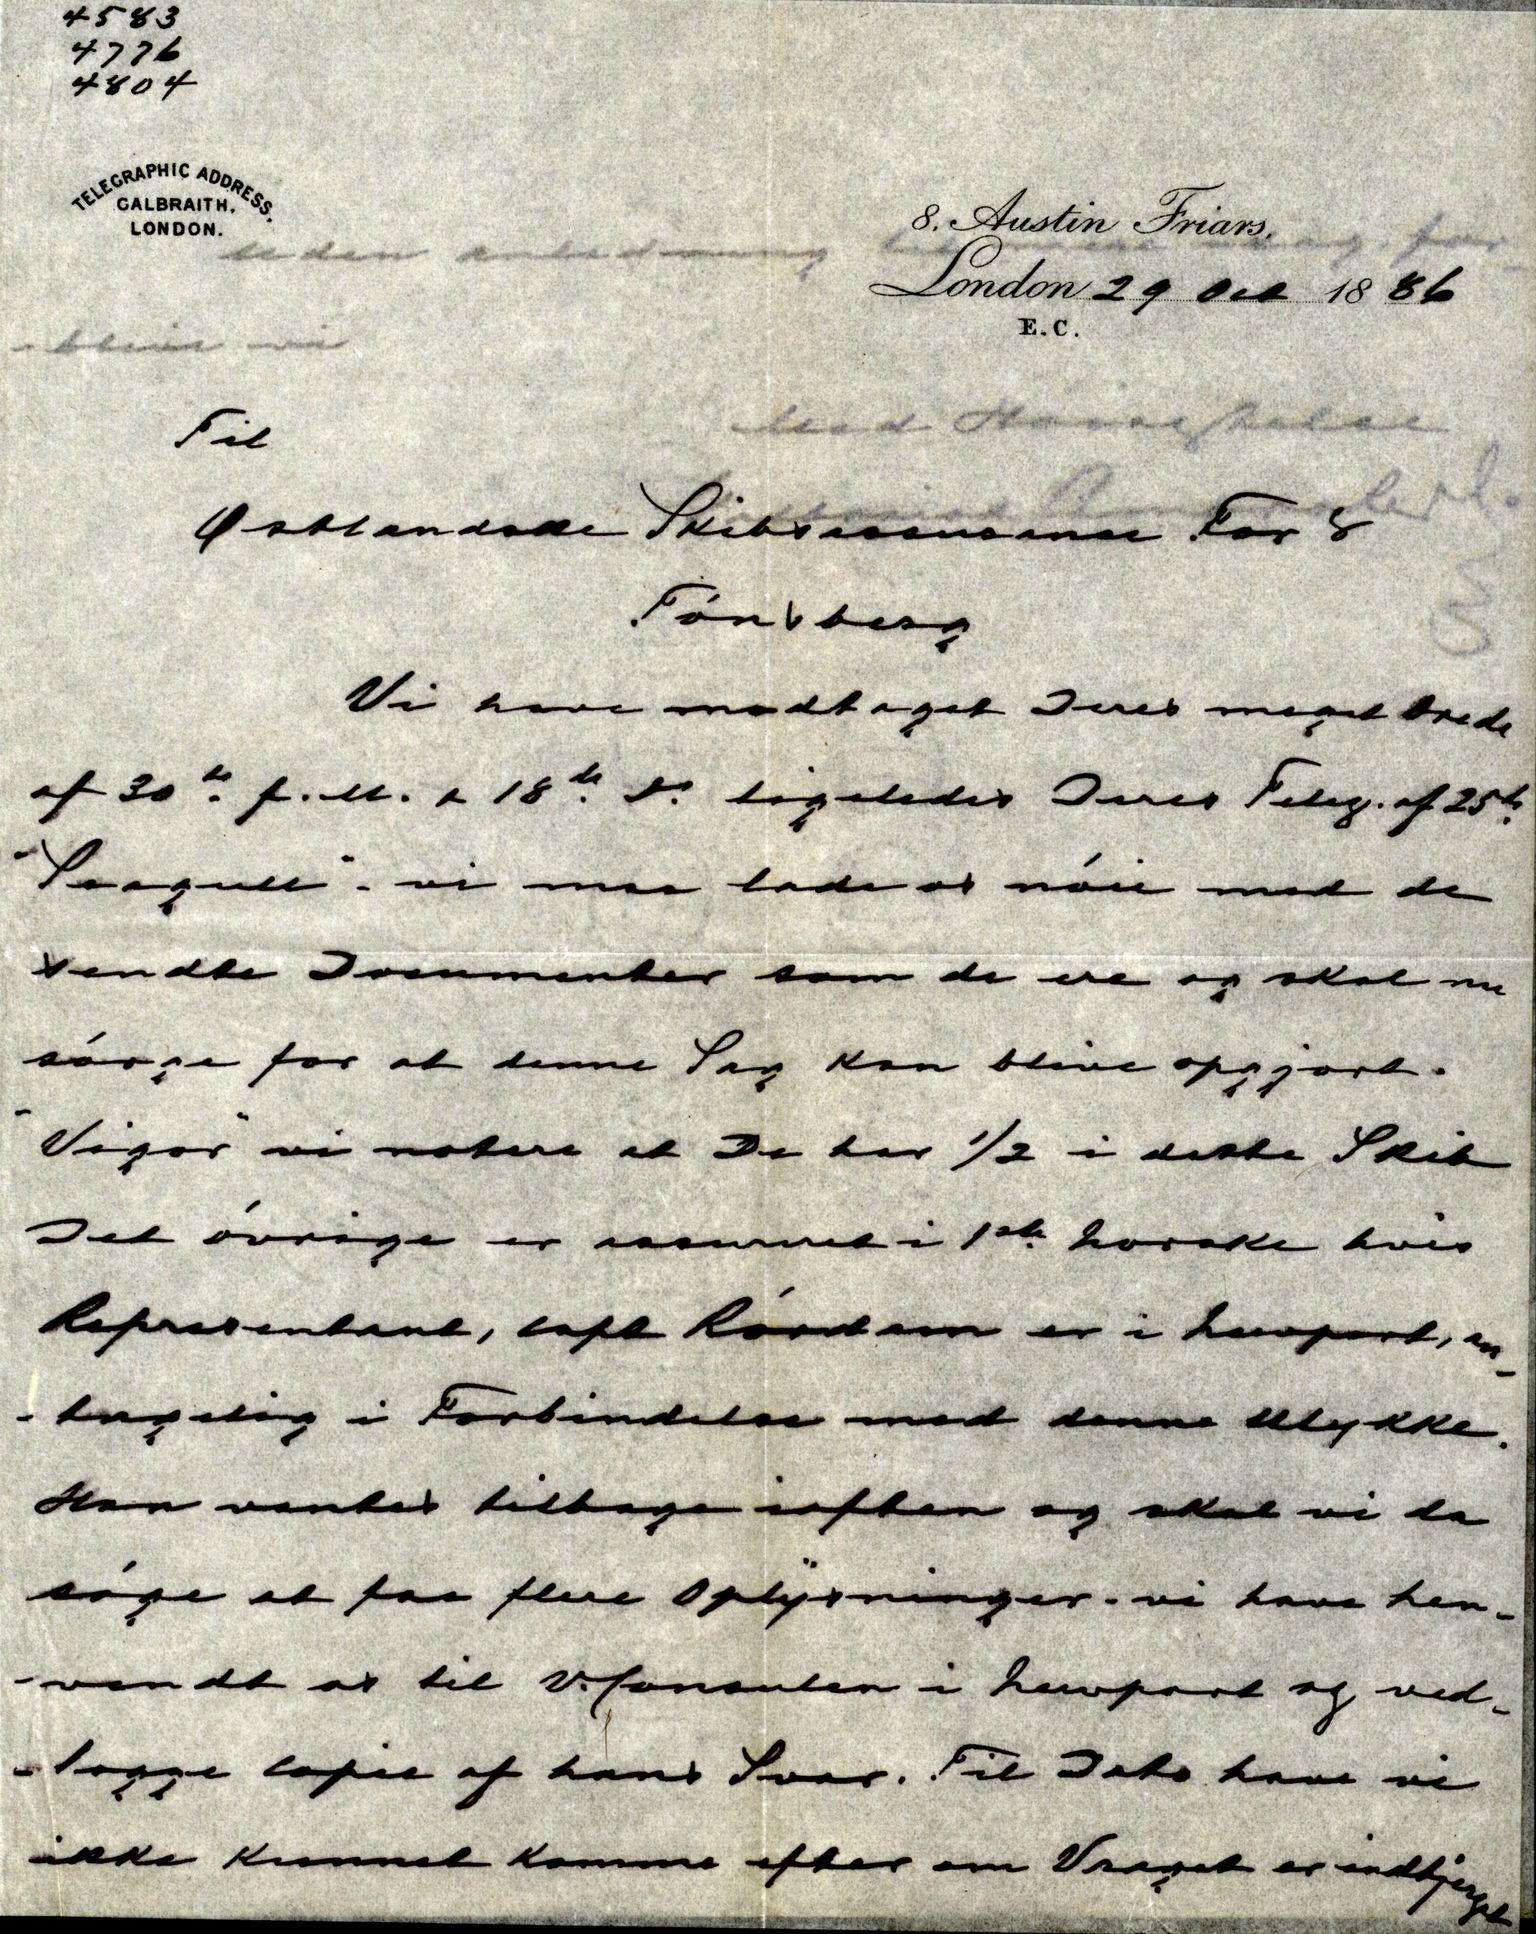 4583
4776
4804
TELEGRAPHIC ADDRESS.
GALBRAITH,
LONDON.
8. Austin Friars,
London 29 Oct 1886
E.C.
Til
Østlandske Skibsassurance For &
Tónsberg
Vi have modtaget Deres meget ærede
af 30te f.M. & 18de ds. ligeledes Deres Teleg. af 25de
"Seagull" - vi maa lade os nóie med de
sendte Documenter som de ere og skal nu
sórge for at denne Sag kan blive opgjort.
"Vigor" vi notere at De har 1/2 i dette Skib
Det óvrige er assureret i 1ste Norske hvis
Representant, Capt Rórdam er i Newport, an-
-tagelig i Forbindelse med denne Ulykke.
Han ventes tilbage iaften og skal vi da
sóge at faa flere Oplysninger. vi have hen-
-vendt os til V.Consulen i Newport og ved-
-lægge Copie af hans Svar. Til Dato have vi
ikke kunnet komme efter om Vraget er indbjerget
leden anledning for-
-blive vi
Med Høiagtelse